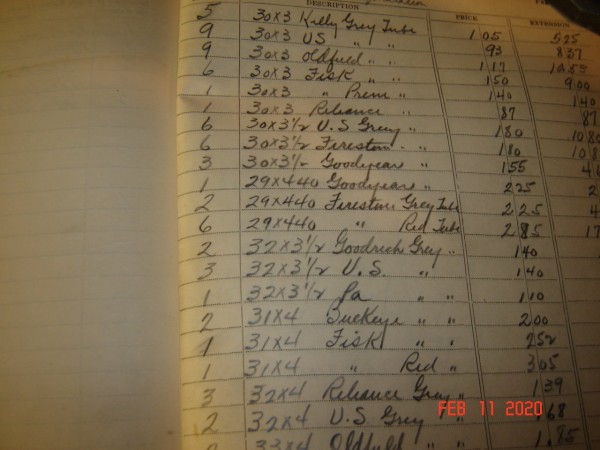 DESCRIPTION PRICE EXTENSION
5 30x3 Kelly Grey Tube 1.05 525
9 30x3 US " " 93 837
9 30x3 Oldfield " " 1.17
6 30x3 Fisk " " 150 900
1 30x3 " Prem " 140 140
1 30x3 Reliance " 87 87
6 30x3 1/2 U.S Grey " 180 1080
6 30x3 1/2 Firestone " " 180 108
3 30x3 1/2 Goodyear " 155 4
1 29x440 Goodyear " 225 2
2 29x440 Firestone Grey Tube 225 4
6 29x440 " Red Tube 285 17
2 32x3 1/2 Goodrich Grey " 140
3 32x3 1/2 U.S. " 140
1 32x3 1/2 Pa " " 110
2 31x4 Buckeye " " 200
1 31x4 Fisk " " 252
1 31x4 " Red " 305
3 32x4 Reliance Grey " 139
2 32x4 U.S Grey " 168
33x4 Oldfield " " 1.85
FEB 11 2020